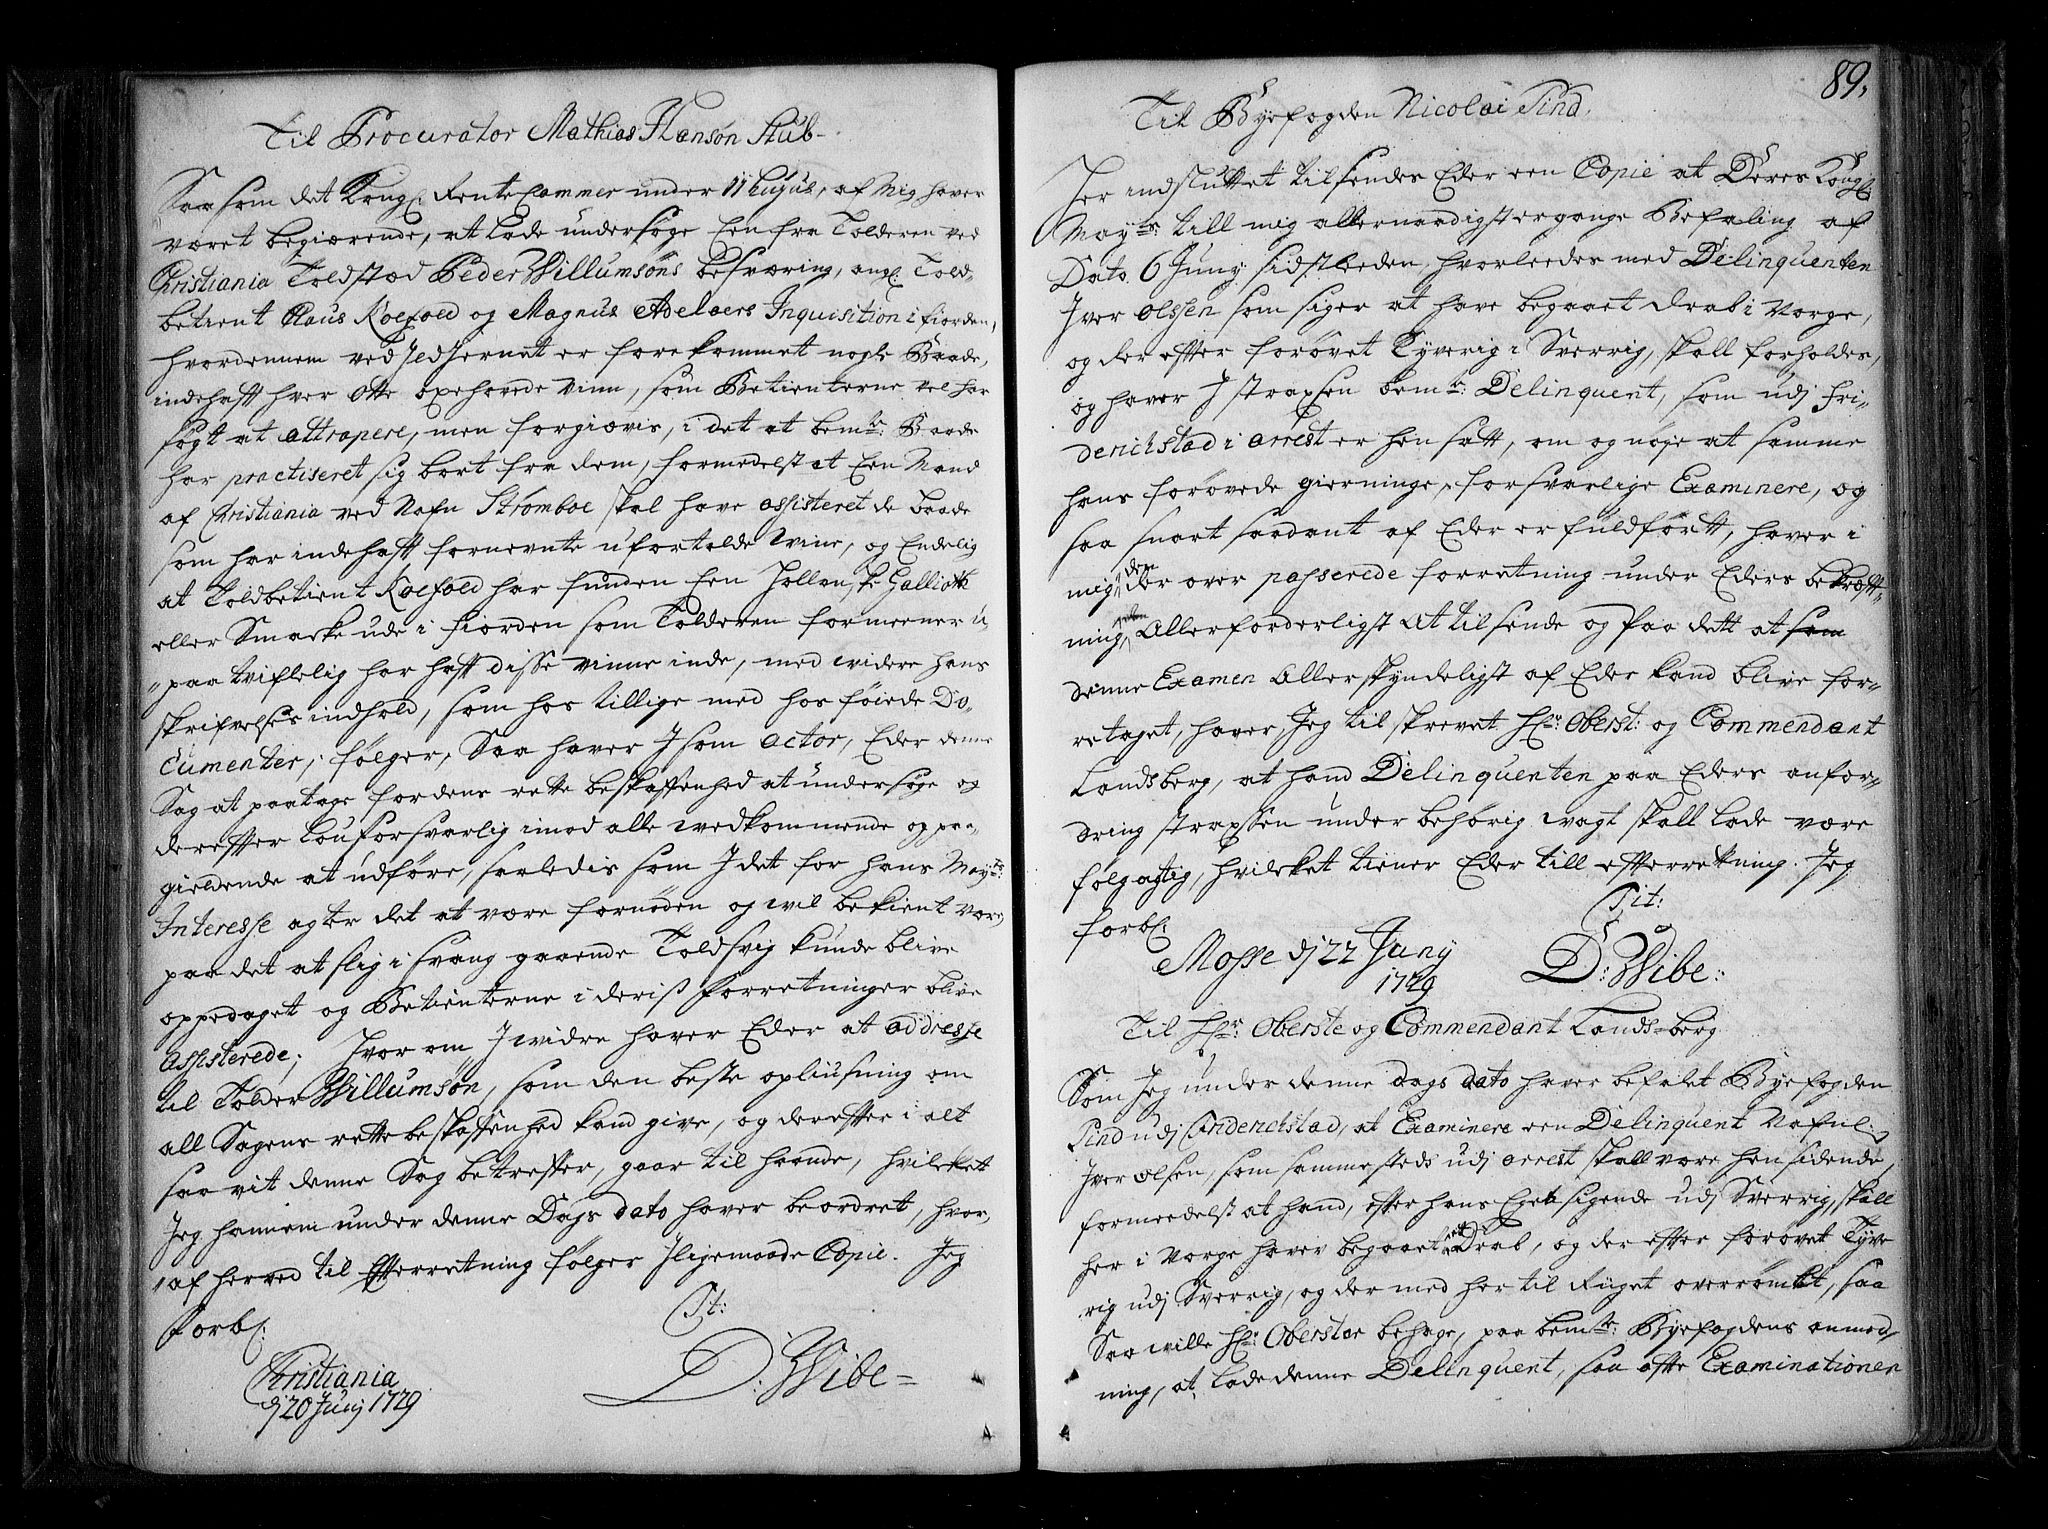 Til Procurator Mathias Hansøn Stub-
Saa som det Kongl: Rente Cammer under 11 hujus, af Mig haver
været begiærende, at lade undersøge Een fra Tolderen ved
Christiania Toldstæd Peder Willumsøns besværing, angl: Told-
betient Claus Koefoed og Magnus Adelaers Inquisition i fiorden,
hvordennem ved Jldjernet er forekommet nogle Baade,
indehafft hver Otte oxehovede viin, som Betienterne vel har
søgt at attrapere, men forgiævis, i det at bemte: Baade
har practiseret sig bort fra dem, formedelst at Een Mand
af Christiania ved Nafn Strømboe skal have assisteret de baade
som har indehafft fornevnte ufortolde wiine, og Endelig
at Toldbetient Koefoed har funden Een Hollan,ske Gallioth
eller Smacke ude i fiorden som Tolderen formeener u-
"paa tviflelig har hafft disse viinne inde, med widere hans
skrifvelses indhold, som hos tillige med hosføiede Do-
cumenter, følger, Saa haver I som actor, Eder denne
Sag at paatage fordens rette beskaffenhed at undersøge og
dereffter louforsvarlig imod alle wedkommende og paa-
gieldende at udføre, saaledis som I det for hans Mayts:
Interesse agter det at være fornøden og wil bekient være,
paa det at slig i svang gaaende Toldsvig kunde blive
oppedaget og Betienterne i deris forretninger blive
assisterede; Hvor om I widre haver Eder at addresse
til Tolder Willumsøn, som den beste opliusning om
all Sagens rette beskaffenhed kand give, og dereffter i alt
saa vit denne Sag betreffer, gaar til haande, hvilcket
Jeg hannem under denne Dags dato haver beordret, hvor-
"af herved til Efferretning følger Iligemaade Copie. Jeg
forbl: Tit:
Christiania D: Wibe-
dj 20 Junj 1729
89.
Til Byefogden Nicolai Pind.
Her indsluttet tilsendes Eder een Copie at Deres Kongl:
Mayts: till mig allernaadigst ergangne Befaling af
Dato 6 Juny sidstleeden, hvorleedes med Delinquenten
Iver Olssen som siger at have begaaet drab i Norge,
og der effter forøvet Tyverig i Sverrig, skall forholdes,
og haver I straxsen bemte: Delinquent, som udj Fri-
derichstad i arrest er hensatt, om og nøye at samme
hans forøvede gierninge, forsvarlige Examinere, og
saa snart saadant af Eder er fuldført, haver i
mig, den der over passerede forretning under Eders bekræfft-
ning, Allerforderligst at tilsende og Paa dett at som
denne Examen Allerskyndeligst af Eder kand blive for-
retaget, haver Jeg tilskrevet Hr: Oberst: og Commendant
Landsberg, at hand Delinquenten paa Eders anfor-
dring straxssen under behørig wagt skall lade være
følgagtig, hvilcket tiener Eder till efterretning. Jeg
forbl: Tit:
Mosse dj 22 Juny D: Wibe:
1729
Til Hr: Oberste og Commendant Lands-berg
Som Jeg under denne dags dato haver befalet Byefogden
Pind udj Friderichstad, at Examinere een Delinquent Nafnl:
Iver olsen, som sammesteds udj arrest skall være hensidende,
formeedelst at hand, effter hans Eget sigende udj Sverrig, skall
her i Norge haver begaaet et Drab, og der effter forøvet Tyve
rig udj Sverrig, og der med her til Riiget overrømbt, saa
Saa wille Hr: Oberster behage, paa bemte: Byefogdens anmod,
ning, at lade denne Delinquent, saa offte Examinationen